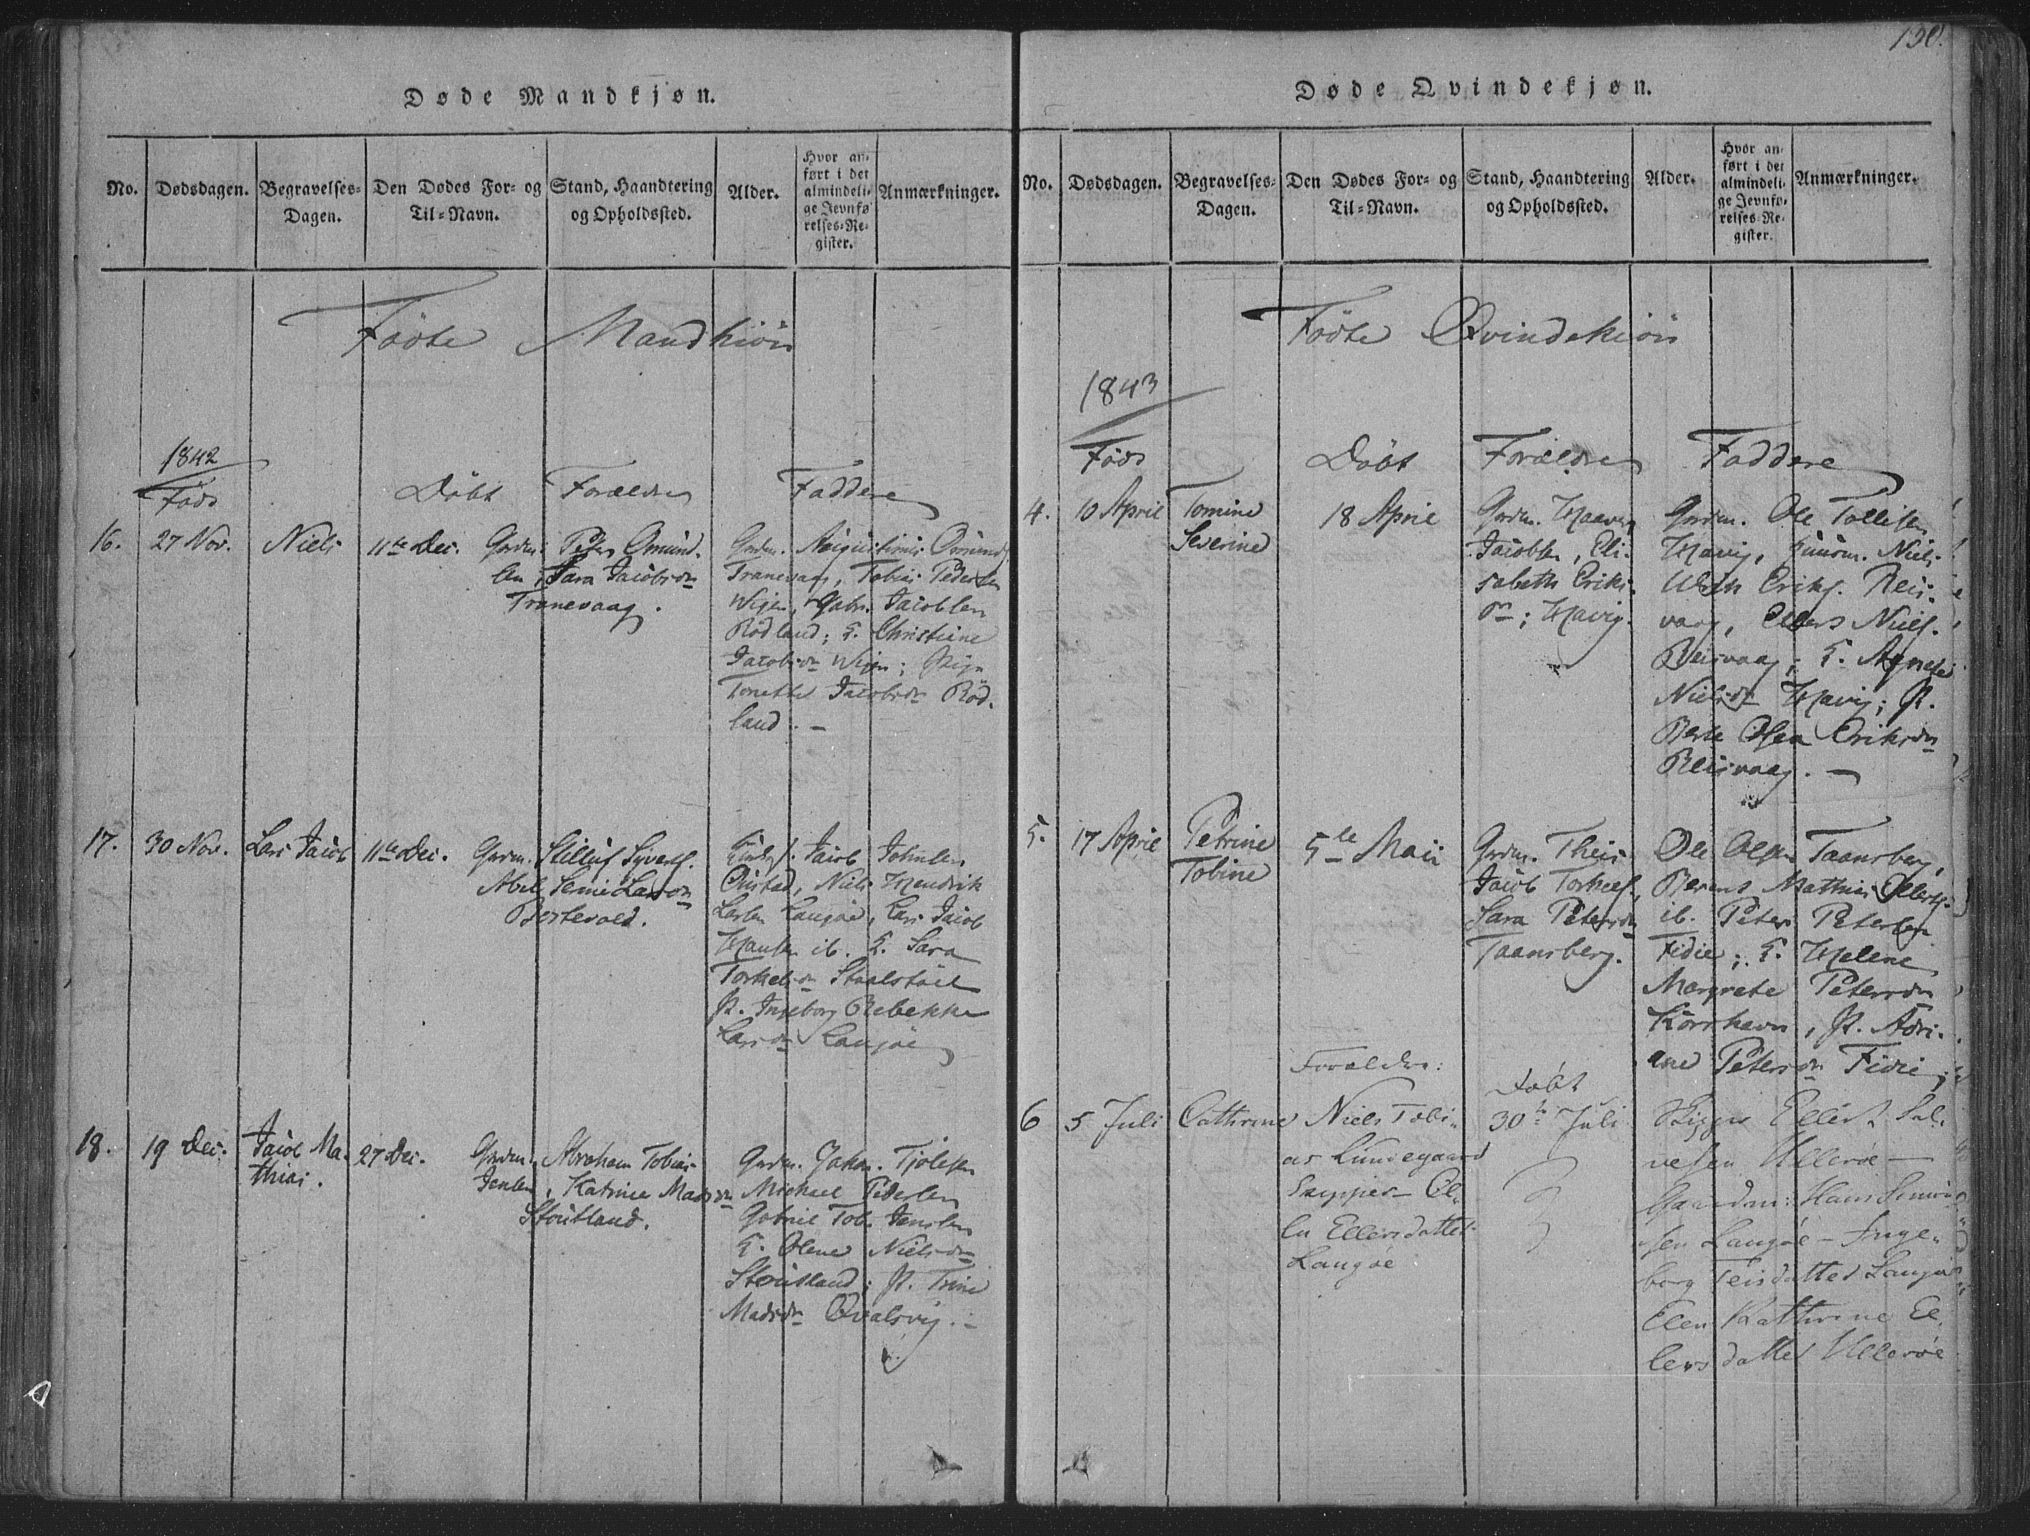 150.
Døde Mandkjøn.
No.
Dødsdagen.
Begravelses-
Dagen.
Den Dødes For- og
Til-Navn.
Stand, Haandtering
og Opholdssted.
Alder.
Hvor an-
ført i det
almindeli-
ge Jevnfø
relses-Re-
gister.
Anmærkninger.
Födte Mandkiön
1842
Föds
Döbt
Forældre
Faddere
16.
27 Nov.
Niels
11te Dec.
Grdm. Peter Omund-
sen, Sara Jacobsdr
Tranevaag.
Tranevaag, Tobias Pedersen
Wigen, Gabr. Jacobsen
Rödland; K. Christine
Jacobsdr Wigen; P.
Tonette Jacobsdr Röd-
land. —
17.
30 Nov.
Lars Jacob
11te Dec.
Grdm. Syverts.
Abel Larsdr
Jacob Johnsen
Niels Hendrik
Larsen Langöe, Lars Jacob
Hansen ib. K. Sara
Torkelsdr
P. Ingeborg Rebekke
Larsdr Langöe
18.
19 Dec.
Jacob Ma-
thias.
27 Dec.
Grdm. Abraham Tobias
Jensen, Katrine Madsdr
Stousland.
Grdm.
Michael Pedersen
Gabriel Tob. Jensen
K. Olene Nielsdr
Stousland; P. Trine
Madsdr Qvalsvig. —
Døde Qvindekjøn.
No.
Dødsdagen.
Begravelses-
Dagen.
Den Dødes For- og
Til-Navn.
Stand, Haandtering
og Opholdssted.
Alder.
Hvor an-
ført i det
almindeli-
ge Jevnfø-
relses-Re-
gister.
Anmærkninger.
Födte Qvindekiön
1843
Föds
Döbt
Forældre
Faddere
4.
10 April
Tomine
Severine
18 April
Grdm.
Jacobsen, Eli-
sabeth Eriks-
dr; Havig.
Grdm. Ole Tollisen
Havig, Niels
Eriks. Reis-
vaag, Ellers Niels.
Reisvaag; K. Agnete
Nielsdr Havig; P.
Berte Olea Eriksdr
Reisvaag. —
5.
17 April
Petrine
Tobine
5te Maii
Grdm. Theis
Jacob Torkels.,
Sara Petersdr
Taansberg.
Ole Olsen Taansberg,
Berent Mathias Ellerts.
ib. Peter Petersen
Fidie; K. Helene
Margrete Petersdr
Korshavn, P. Adri-
ane Petersdr Fidie;
Forældre:
Döbt
6
5 Juli
Cathrine
Niels Tobi-
as Lundegaard
El-
en Ellersdatter
Langöe
30te Juli
Skipper Ellert Sal-
vesen Ullerøe —
Gaardm: Hans Simon-
sen Langöe — Inge-
borg Teisdatter Langöe
Elen Kathrine El-
lersdatter Ullerøe